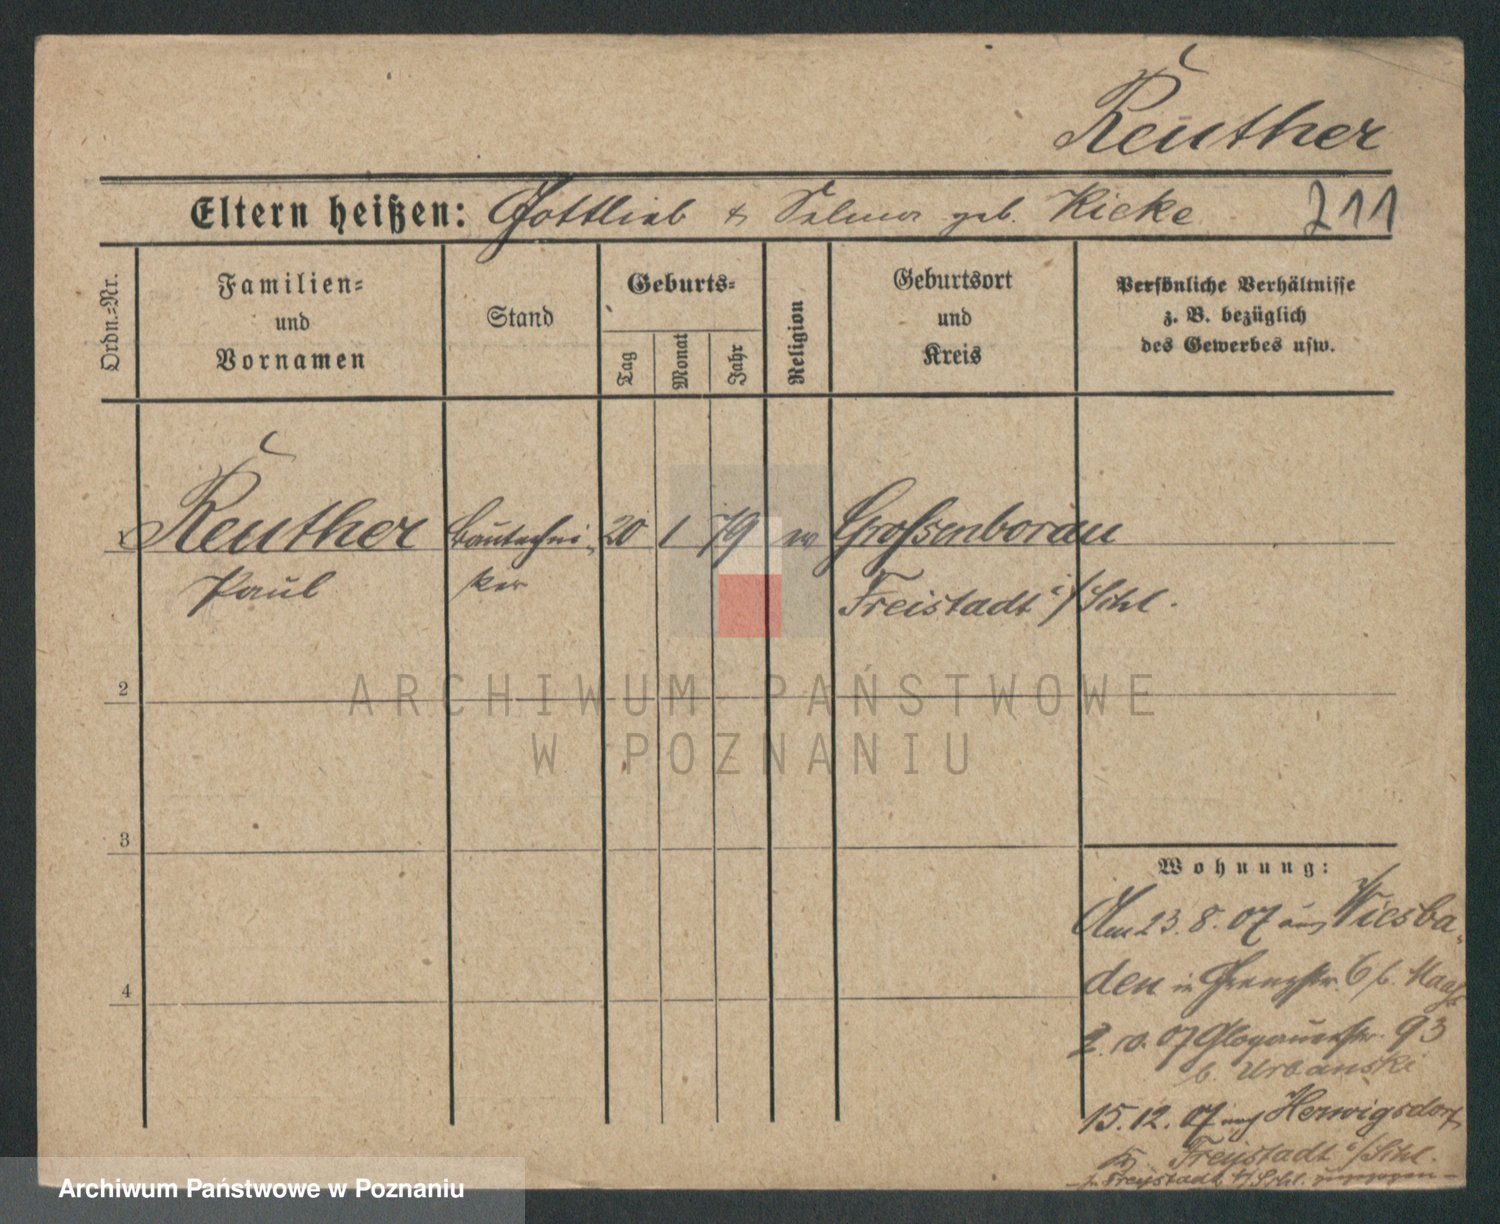 Reuther
Eltern heißen: Gottlieb & Selma geb. Kicke 711
Ordn.-Nr.
Familien-
und
Vornamen
Stand
Geburts-
Tag
Monat
Jahr
Religion
Geburtsort
und
Kreis
Persönliche Verhältnisse
z. B. bezüglich
des Gewerbes usw.
1 Reuther Bautechni- 20 1 79 ev Grossenborau
Paul ker Freistadt i/Schl.
2
3
4
Wohnung:
Am 23. 8. 07 aus Wiesba-
den in Grenzstr. 6 b.
2. 10. 07 Glogauerstr. 93
b. Urbanski
15. 12. 07 nach Herwigsdorf
Freystadt i/Schl.
Freystadt i/Schl.
ARCHIWUM PAŃSTWOWE
W POZNANIU
Archiwum Państwowe w Poznaniu